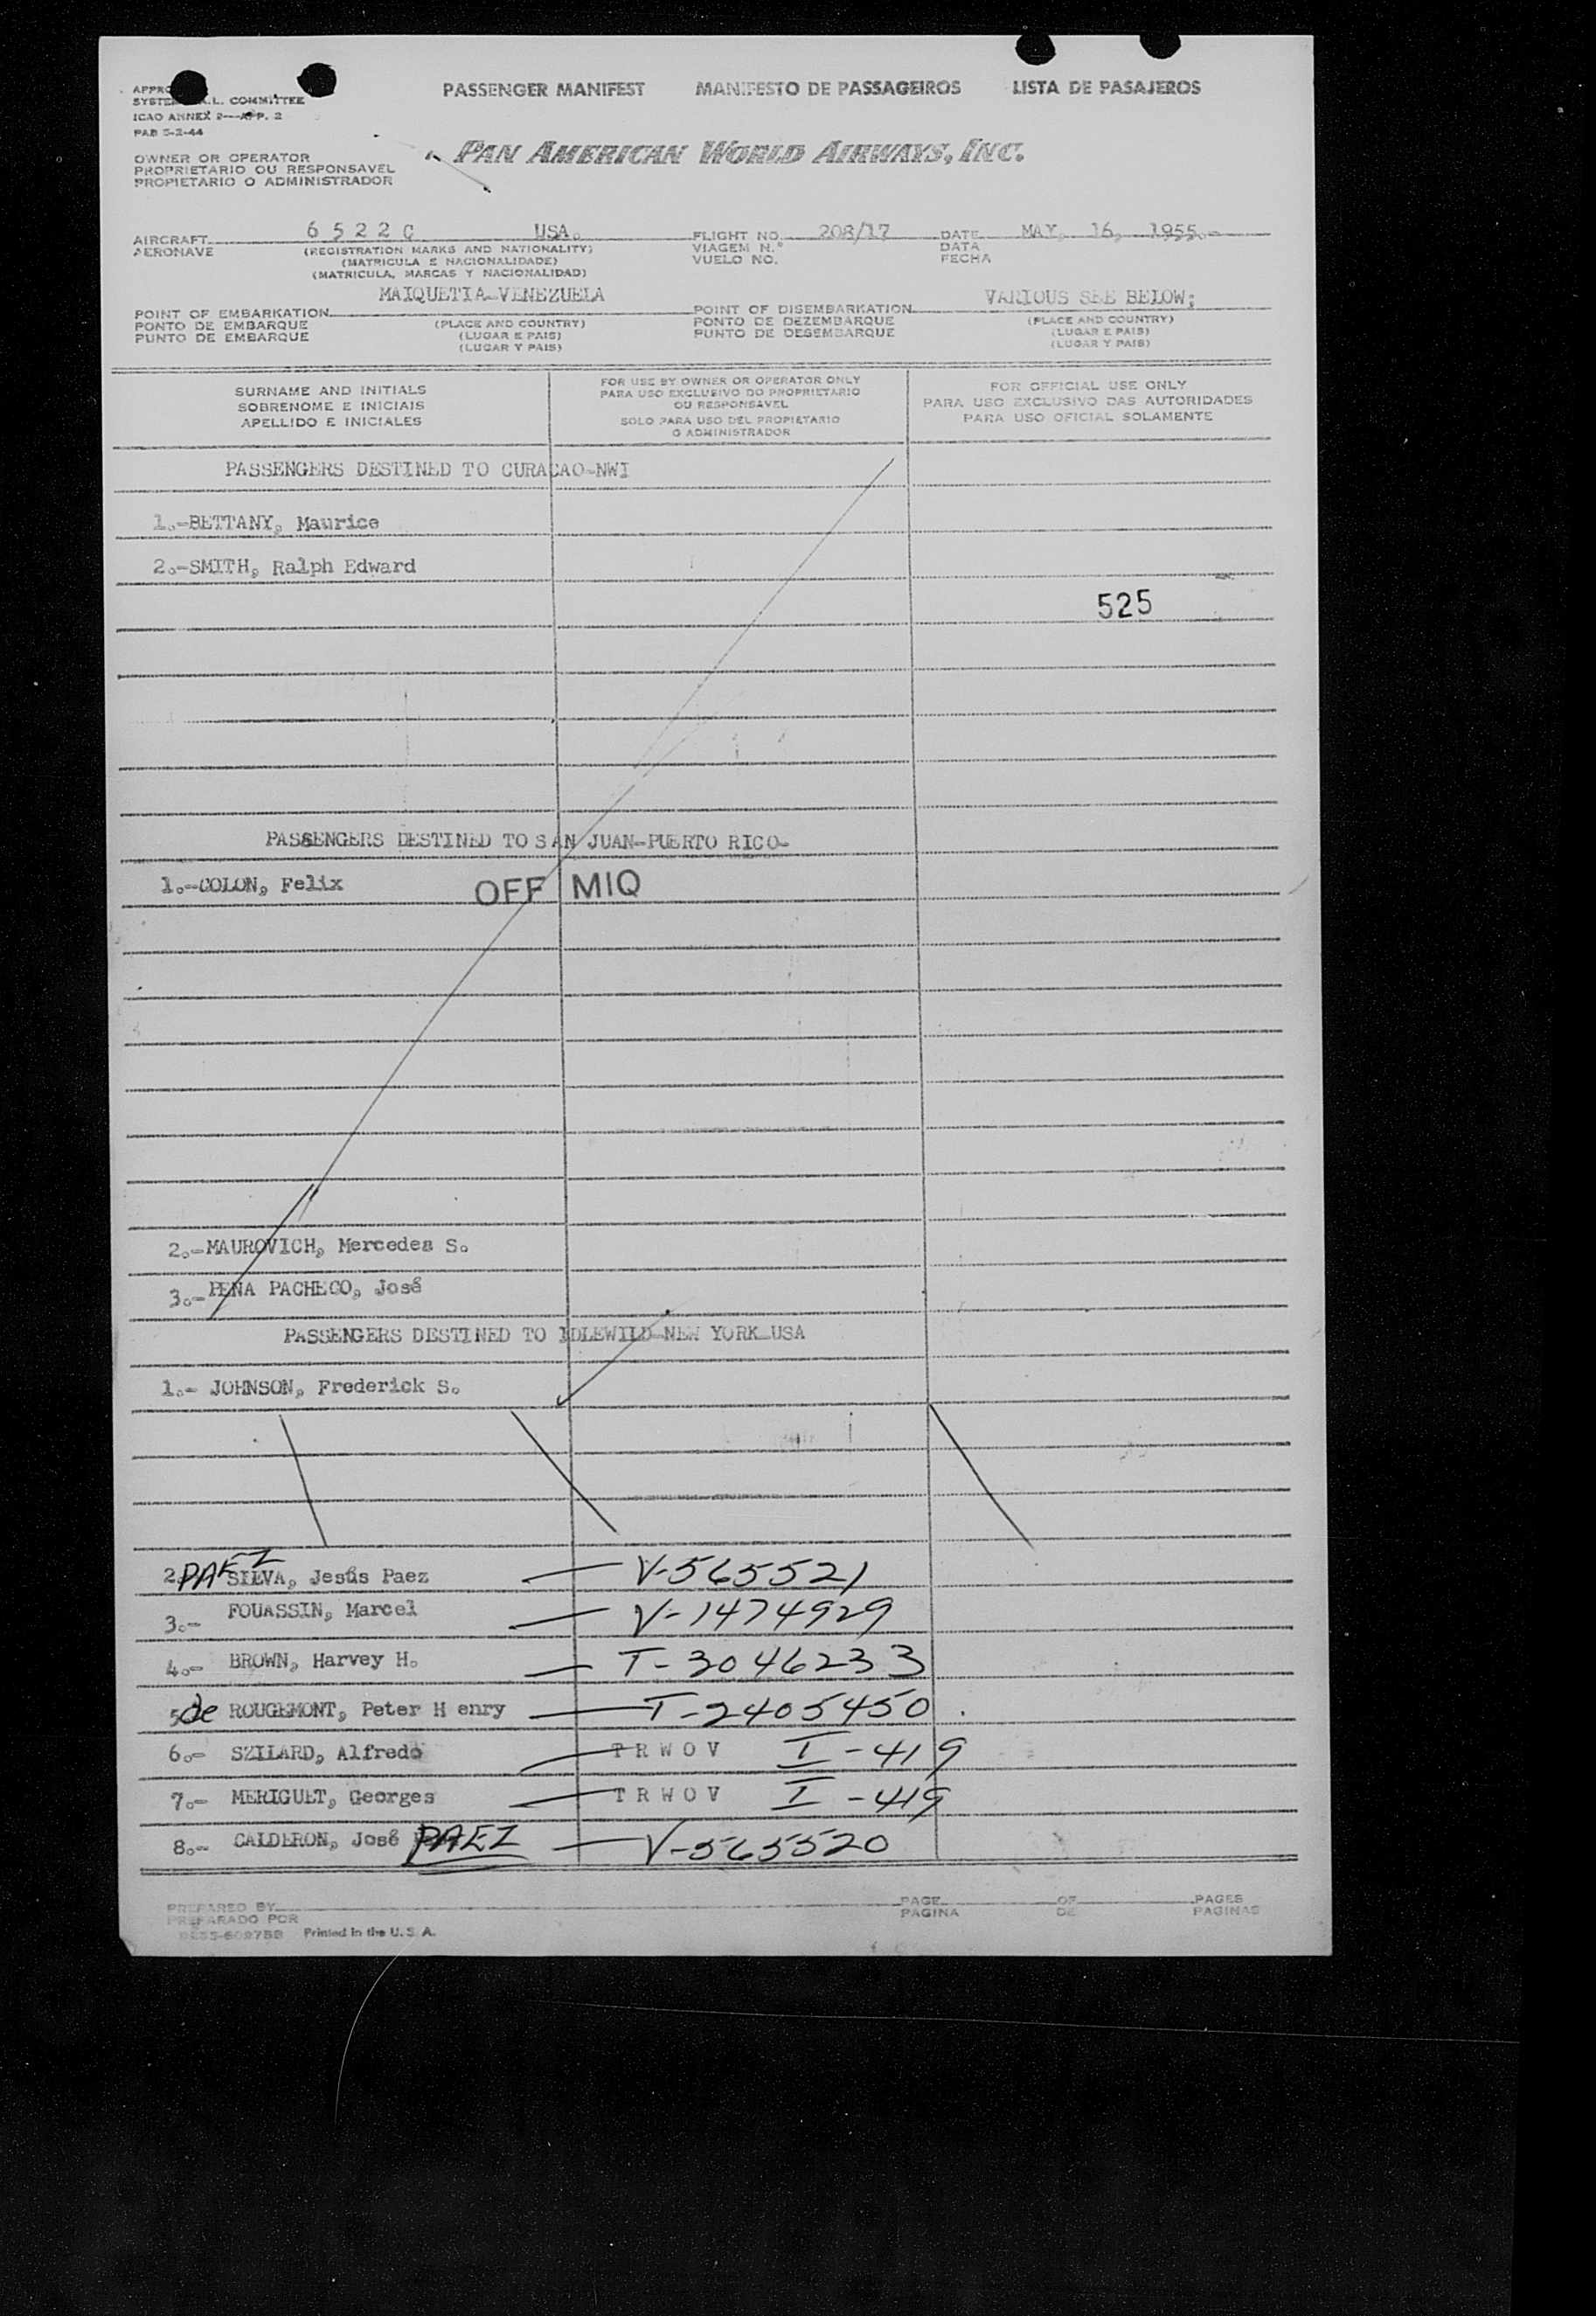 PASSENGER MANIFEST MANIFESTO DE PASSAGEIROS LISTA DE PASAJEROS
COMMITTEE
ICAO ANNEX 2—APP. 2
PAB 5-2-44
OWNER OR OPERATOR
PROPRIETARIO OU RESPONSAVEL
PROPIETARIO O ADMINISTRADOR
PAN AMERICAN WORLD AIRWAYS, INC.
AIRCRAFT 6 5 2 2 C USA. FLIGHT NO. 208/17 DATE MAY, 16, 1955.-
AERONAVE (REGISTRATION MARKS AND NATIONALITY) VIAGEM N.º DATA
(MATRICULA E NACIONALIDADE) VUELO NO. FECHA
(MATRICULA, MARCAS Y NACIONALIDAD)
MAIQUETIA-VENEZUELA VARIOUS SEE BELOW:
POINT OF EMBARKATION POINT OF DISEMBARKATION
PONTO DE EMBARQUE (PLACE AND COUNTRY) PONTO DE DEZEMBARQUE (PLACE AND COUNTRY)
PUNTO DE EMBARQUE (LUGAR E PAIS) PUNTO DE DESEMBARQUE (LUGAR E PAIS)
(LUGAR Y PAIS) (LUGAR Y PAIS)
SURNAME AND INITIALS
SOBRENOME E INICIAIS
APELLIDO E INICIALES
FOR USE BY OWNER OR OPERATOR ONLY
PARA USO EXCLUSIVO DO PROPRIETARIO
OU RESPONSAVEL
SOLO PARA USO DEL PROPIETARIO
O ADMINISTRADOR
FOR OFFICIAL USE ONLY
PARA USO EXCLUSIVO DAS AUTORIDADES
PARA USO OFICIAL SOLAMENTE
PASSENGERS DESTINED TO CURACAO-NWI
1.-BETTANY, Maurice
2.-SMITH, Ralph Edward
525
PASSENGERS DESTINED TO SAN JUAN-PUERTO RICO-
1.-COLON, Felix OFF MIQ
2.-MAUROVICH, Mercedes S.
3.-PENA PACHECO, José
PASSENGERS DESTINED TO IDLEWILD-NEW YORK-USA
1.- JOHNSON, Frederick S.
2 PAEZ SILVA, Jesús Paez — V-565521
3.- FOUASSIN, Marcel — V-1474929
4.- BROWN, Harvey H. — T-3046233
5 de ROUGEMONT, Peter H enry — T-2405450
6.- SZILARD, Alfredo — T R W O V I-419
7.- MERIGUET, Georges — T R W O V I-419
8.- CALDERON, José PAEZ — V-565520
PREPARED BY PAGE OF PAGES
PREPARADO POR PAGINA DE PAGINAS
Printed in the U. S. A.